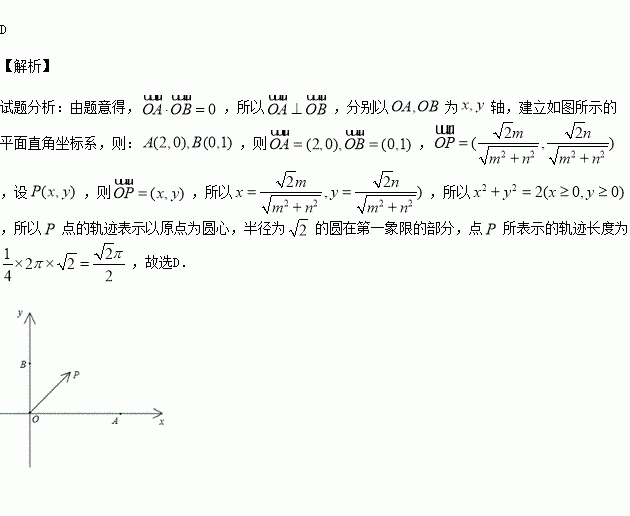 D
【解析】
试题分析：由题意得，$\overrightarrow{OA}\cdot\overrightarrow{OB}=0$，所以$\overrightarrow{OA}\perp\overrightarrow{OB}$，分别以$OA,OB$为$x,y$轴，建立如图所示的
平面直角坐标系，则：$A(2,0),B(0,1)$，则$\overrightarrow{OA}=(2,0),\overrightarrow{OB}=(0,1)$，$\overrightarrow{OP}=(\frac{\sqrt{2}m}{\sqrt{m^2+n^2}},\frac{\sqrt{2}n}{\sqrt{m^2+n^2}})$
，设$P(x,y)$，则$\overrightarrow{OP}=(x,y)$，所以$x=\frac{\sqrt{2}m}{\sqrt{m^2+n^2}},y=\frac{\sqrt{2}n}{\sqrt{m^2+n^2}})$，所以$x^2+y^2=2(x\geq 0,y\geq 0)$
，所以$P$点的轨迹表示以原点为圆心，半径为$\sqrt{2}$的圆在第一象限的部分，点$P$所表示的轨迹长度为
$\frac{1}{4}\times 2\pi\times\sqrt{2}=\frac{\sqrt{2}\pi}{2}$，故选D．
y
B
P
O
A
x